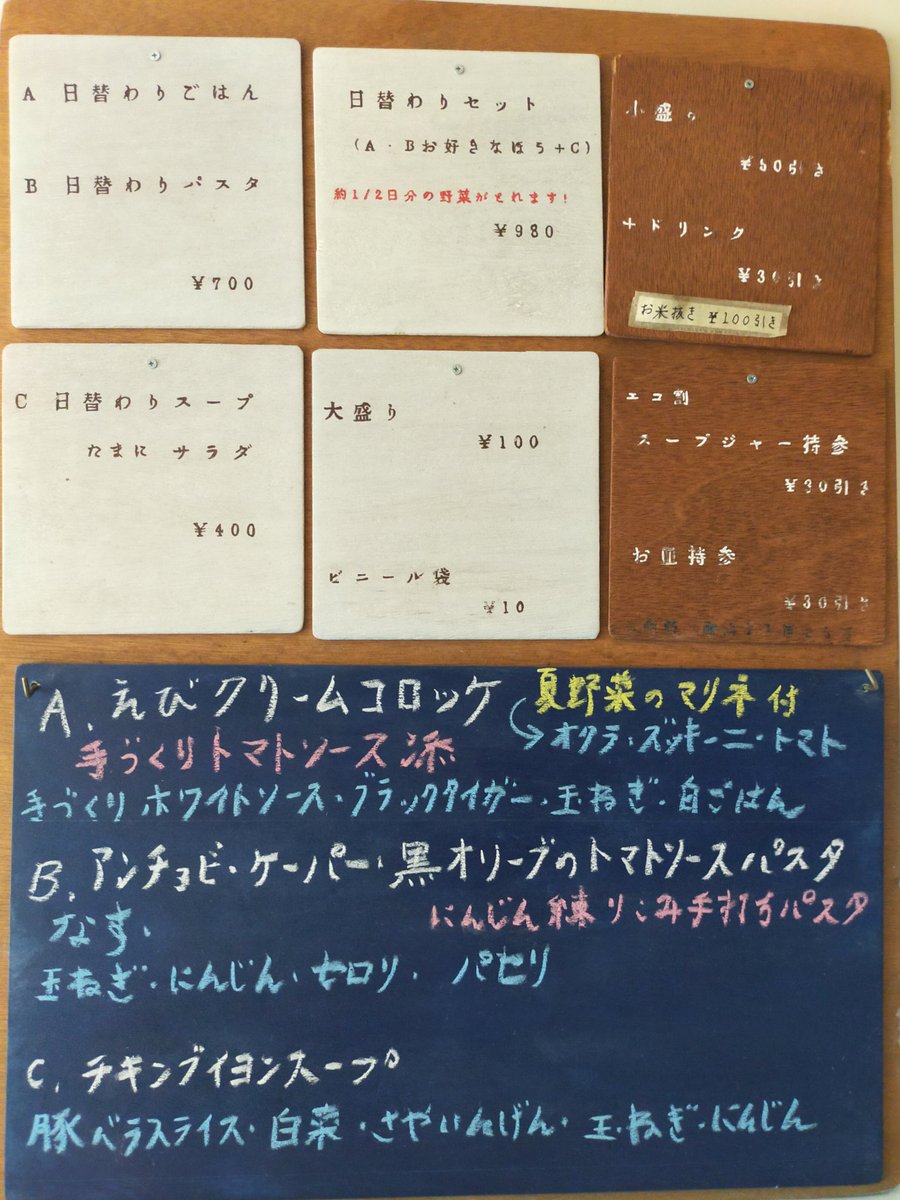 A 日替わりごはん
B 日替わりパスタ
¥700
日替わりセット
(A・Bお好きなほう+C)
約1/2日分の野菜がとれます!
¥980
小盛り
¥50引き
+ドリンク
¥30引き
お米抜き ¥100引き
C 日替わりスープ
たまに サラダ
¥400
大盛り
¥100
ビニール袋
¥10
エコ割
スープジャー持参
¥30引き
お皿持参
¥30引き
A. えびクリームコロッケ
夏野菜のマリネ付
手づくりトマトソース添
オクラ・ズッキーニ・トマト
手づくりホワイトソース・ブラックタイガー・玉ねぎ・白ごはん
B. アンチョビ・ケーパー・黒オリーブのトマトソースパスタ
にんじん練りこみ手打ちパスタ
なす・
玉ねぎ・にんじん・セロリ・パセリ
C. チキンブイヨンスープ
豚バラスライス・白菜・さやいんげん・玉ねぎ・にんじん